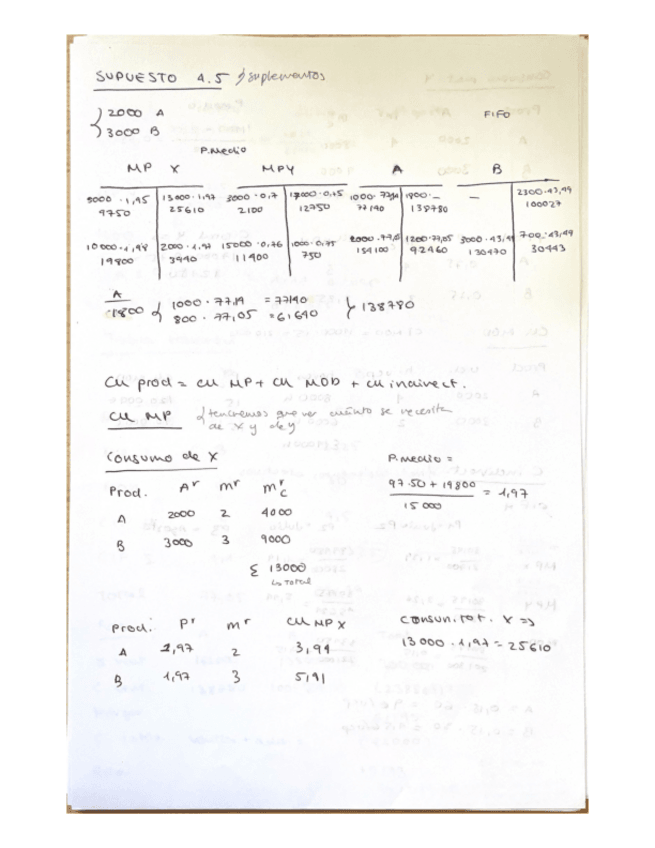 SUPUESTO 4.5 suplementos
2000 A
3000 B
FIFO
P.Medio
MP X MPY A B
5000 · 1,95 13000 · 1,97 3000 · 0,7 17000 · 0,75 1000 · 77,14 1800 · — — 2300 · 43,49
9750 25610 2100 12750 77140 138780 100027
10000 · 1,98 2000 · 1,97 15000 · 0,76 1000 · 0,75 2000 · 77,05 1200 · 77,05 3000 · 43,49 700 · 43,49
19800 3940 11400 750 154100 92460 130470 30443
A
1800 1000 · 77,14 = 77140
800 · 77,05 = 61640 138780
CU prod = CU MP + CU MOD + CU indirect.
CU MP tendremos que ver cuánto se necesita
de X y de Y
Consumo de X
Prod. Aʳ mʳ mʳc
A 2000 2 4000
B 3000 3 9000
Σ 13000
↳ TOTAL
P.medio =
97.50 + 19800
= 1,97
15 000
Prod. Pʳ mʳ CU MP X
A 1,97 2 3,94
B 1,97 3 5,91
Consum. tot. X =>
13 000 · 1,97 = 25610